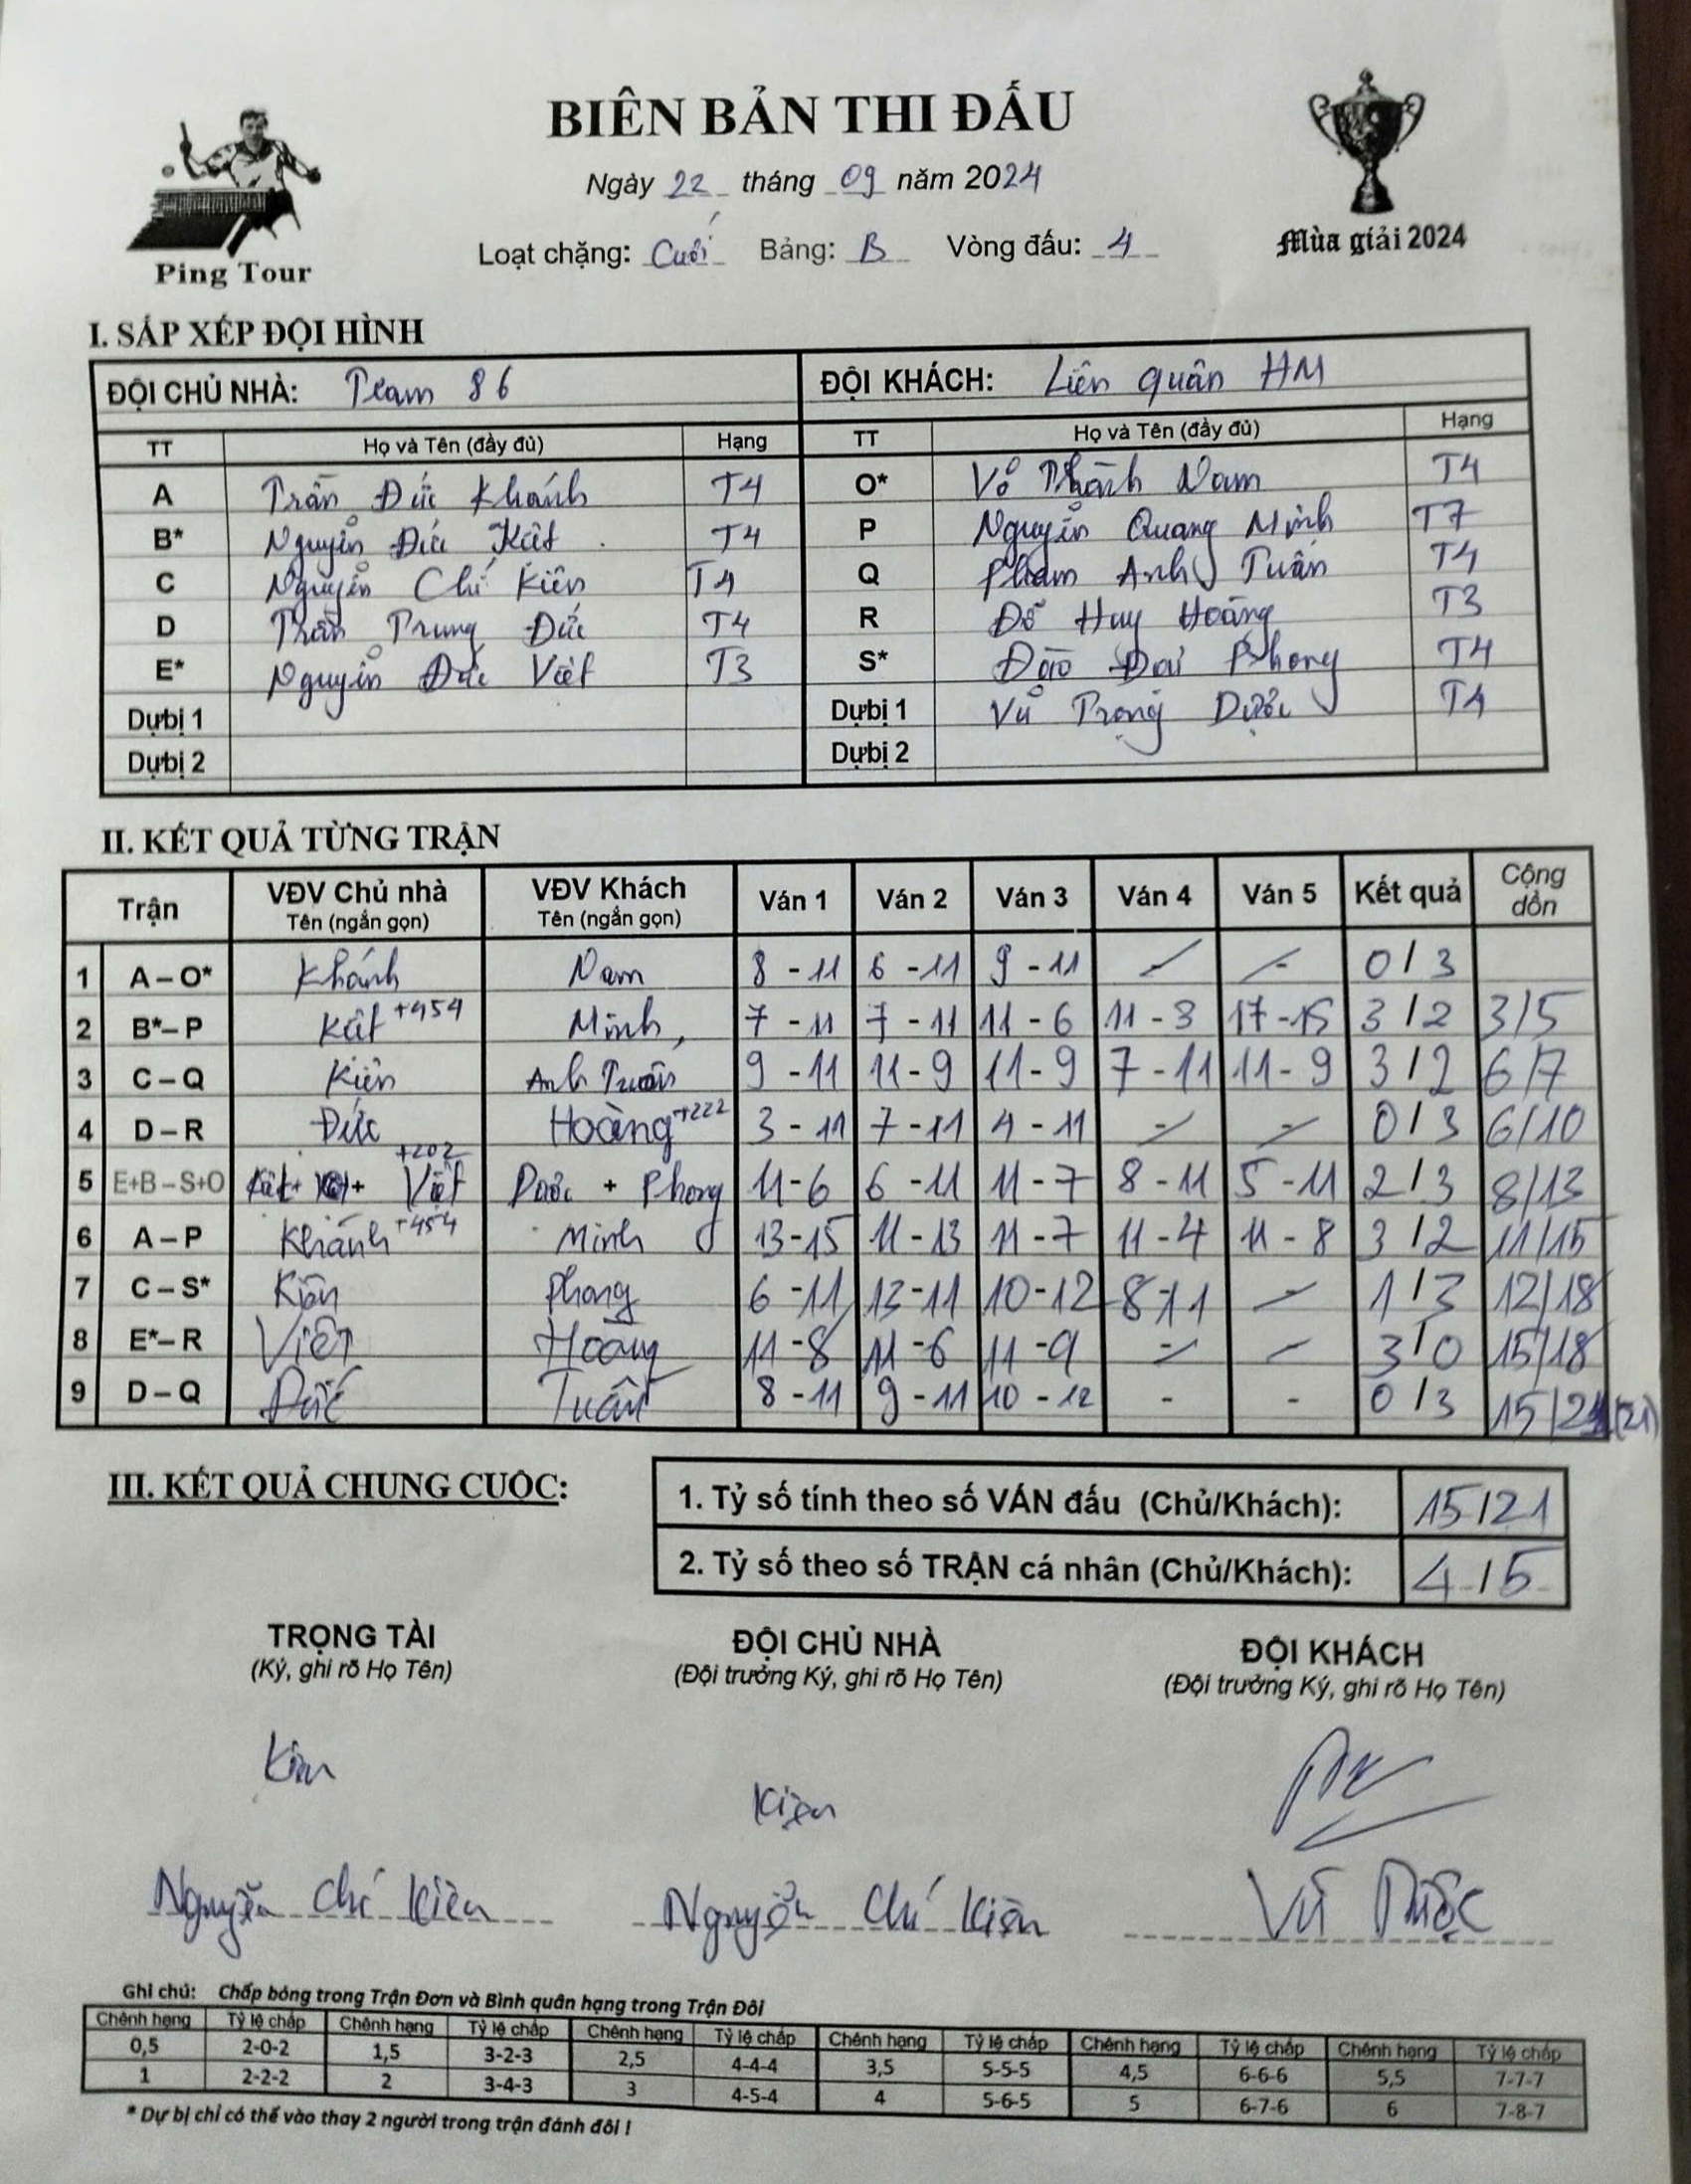 BIÊN BẢN THI ĐẤU
Ngày 22 tháng 09 năm 2024
Loạt chặng: Cuối Bảng: B Vòng đấu: 4
Ping Tour
Mùa giải 2024
I. SẮP XẾP ĐỘI HÌNH
ĐỘI CHỦ NHÀ: Team 86 ĐỘI KHÁCH: Liên quân HM
TT Họ và Tên (đầy đủ) Hạng TT Họ và Tên (đầy đủ) Hạng
A Trần Đức Khánh T4 O* Võ Thành Nam T4
B* Nguyễn Đức Kât T4 P Nguyễn Quang Minh T7
C Nguyễn Chí Kiên T4 Q Phạm Anh Tuấn T4
D Trần Trung Đức T4 R Đỗ Huy Hoàng T3
E* Nguyễn Đức Việt T3 S* Đào Đại Phong T4
Dự bị 1 Vũ Trọng Dược T4
Dự bị 2 Dự bị 2
II. KẾT QUẢ TỪNG TRẬN
Trận VĐV Chủ nhà Tên (ngắn gọn) VĐV Khách Tên (ngắn gọn) Ván 1 Ván 2 Ván 3 Ván 4 Ván 5 Kết quả Cộng dồn
1 A – O* Khánh Nam 8 - 11 6 - 11 9 - 11 - - 0 / 3
2 B* – P Kât +454 Minh 7 - 11 7 - 11 11 - 6 11 - 8 17 - 15 3 / 2 3/5
3 C – Q Kiên Anh Tuấn 9 - 11 11 - 9 11 - 9 7 - 11 11 - 9 3 / 2 6/7
4 D – R Đức Hoàng +222 3 - 11 7 - 11 4 - 11 - - 0 / 3 6/10
5 E+B – S+O Kât + Việt +202 Dược + Phong 11 - 6 6 - 11 11 - 7 8 - 11 5 - 11 2 / 3 8/13
6 A – P Khánh +454 Minh 13-15 11 - 13 11 - 7 11 - 4 11 - 8 3 / 2 11/15
7 C – S* Kiên Phong 6 - 11 13 - 11 10 - 12 8-11 - 1 / 3 12/18
8 E* – R Việt Hoàng 11 - 8 11 - 6 11 - 9 - - 3 / 0 15/18
9 D – Q Đức Tuấn 8 - 11 9 - 11 10 - 12 - - 0 / 3 15/21 (21)
III. KẾT QUẢ CHUNG CUỘC:
1. Tỷ số tính theo số VÁN đấu (Chủ/Khách): 15/21
2. Tỷ số theo số TRẬN cá nhân (Chủ/Khách): 4/5
TRỌNG TÀI ĐỘI CHỦ NHÀ ĐỘI KHÁCH
(Ký, ghi rõ Họ Tên) (Đội trưởng Ký, ghi rõ Họ Tên) (Đội trưởng Ký, ghi rõ Họ Tên)
Kiên Kiên
Nguyễn Chí Kiên Nguyễn Chí Kiên Vũ Dược
Ghi chú: Chấp bóng trong Trận Đơn và Bình quân hạng trong Trận Đôi
Chênh hạng Tỷ lệ chấp Chênh hạng Tỷ lệ chấp Chênh hạng Tỷ lệ chấp Chênh hạng Tỷ lệ chấp Chênh hạng Tỷ lệ chấp Chênh hạng Tỷ lệ chấp
0,5 2-0-2 1,5 3-2-3 2,5 4-4-4 3,5 5-5-5 4,5 6-6-6 5,5 7-7-7
1 2-2-2 2 3-4-3 3 4-5-4 4 5-6-5 5 6-7-6 6 7-8-7
* Dự bị chỉ có thể vào thay 2 người trong trận đánh đôi !